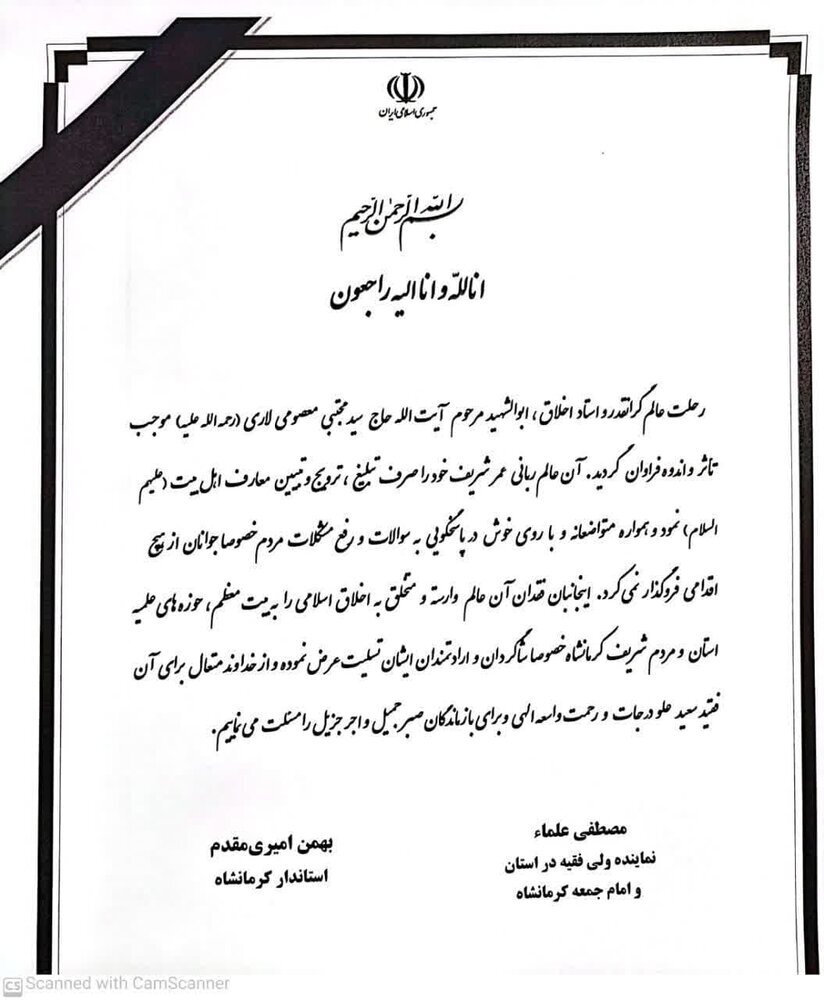 جمهوری اسلامی ایران
بسم الله الرحمن الرحیم
انالله و انا الیه راجعون
رحلت عالم گرانقدر و استاد اخلاق ، ابوالشهید مرحوم آیت الله حاج سید مجتبی معصومی لاری (رحمه الله علیه) موجب
تاثر و اندوه فراوان گردید. آن عالم ربانی عمر شریف خود را صرف تبلیغ ، ترویج و تبیین معارف اهل بیت (علیهم
السلام) نمود و همواره متواضعانه و با روی خوش در پاسخگویی به سوالات و رفع مشکلات مردم خصوصا جوانان از هیچ
اقدامی فروگذار نمی کرد. اینجانبان فقدان آن عالم وارسته و متخلق به اخلاق اسلامی را به بیت معظم ، حوزه های علمیه
استان و مردم شریف کرمانشاه خصوصا شاگردان و ارادتمندان ایشان تسلیت عرض نموده و از خداوند متعال برای آن
فقید سعید علو درجات و رحمت واسعه الهی و برای بازماندگان صبر جمیل و اجر جزیل را مسئلت می نماییم.
مصطفی علماء
نماینده ولی فقیه در استان
و امام جمعه کرمانشاه
بهمن امیری‌مقدم
استاندار کرمانشاه
CS Scanned with CamScanner